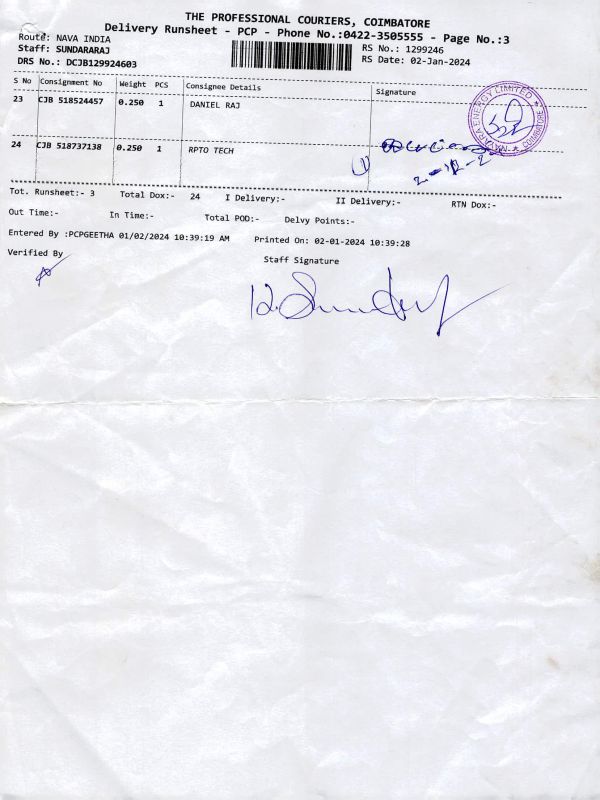 THE PROFESSIONAL COURIERS, COIMBATORE
Delivery Runsheet - PCP - Phone No.:0422-3505555 - Page No.:3
Route: NAVA INDIA
RS No.: 1299246
Staff: SUNDARARAJ
RS Date: 02-Jan-2024
DRS No.: DCJB129924603
S No Consignment No Weight PCS Consignee Details Signature
23 CJB 518524457 0.250 1 DANIEL RAJ
24 CJB 518737138 0.250 1 RPTO TECH
Tot. Runsheet:- 3 Total Dox:- 24 I Delivery:- II Delivery:- RTN Dox:-
Out Time:- In Time:- Total POD:- Delvy Points:-
Entered By :PCPGEETHA 01/02/2024 10:39:19 AM Printed On: 02-01-2024 10:39:28
Verified By Staff Signature